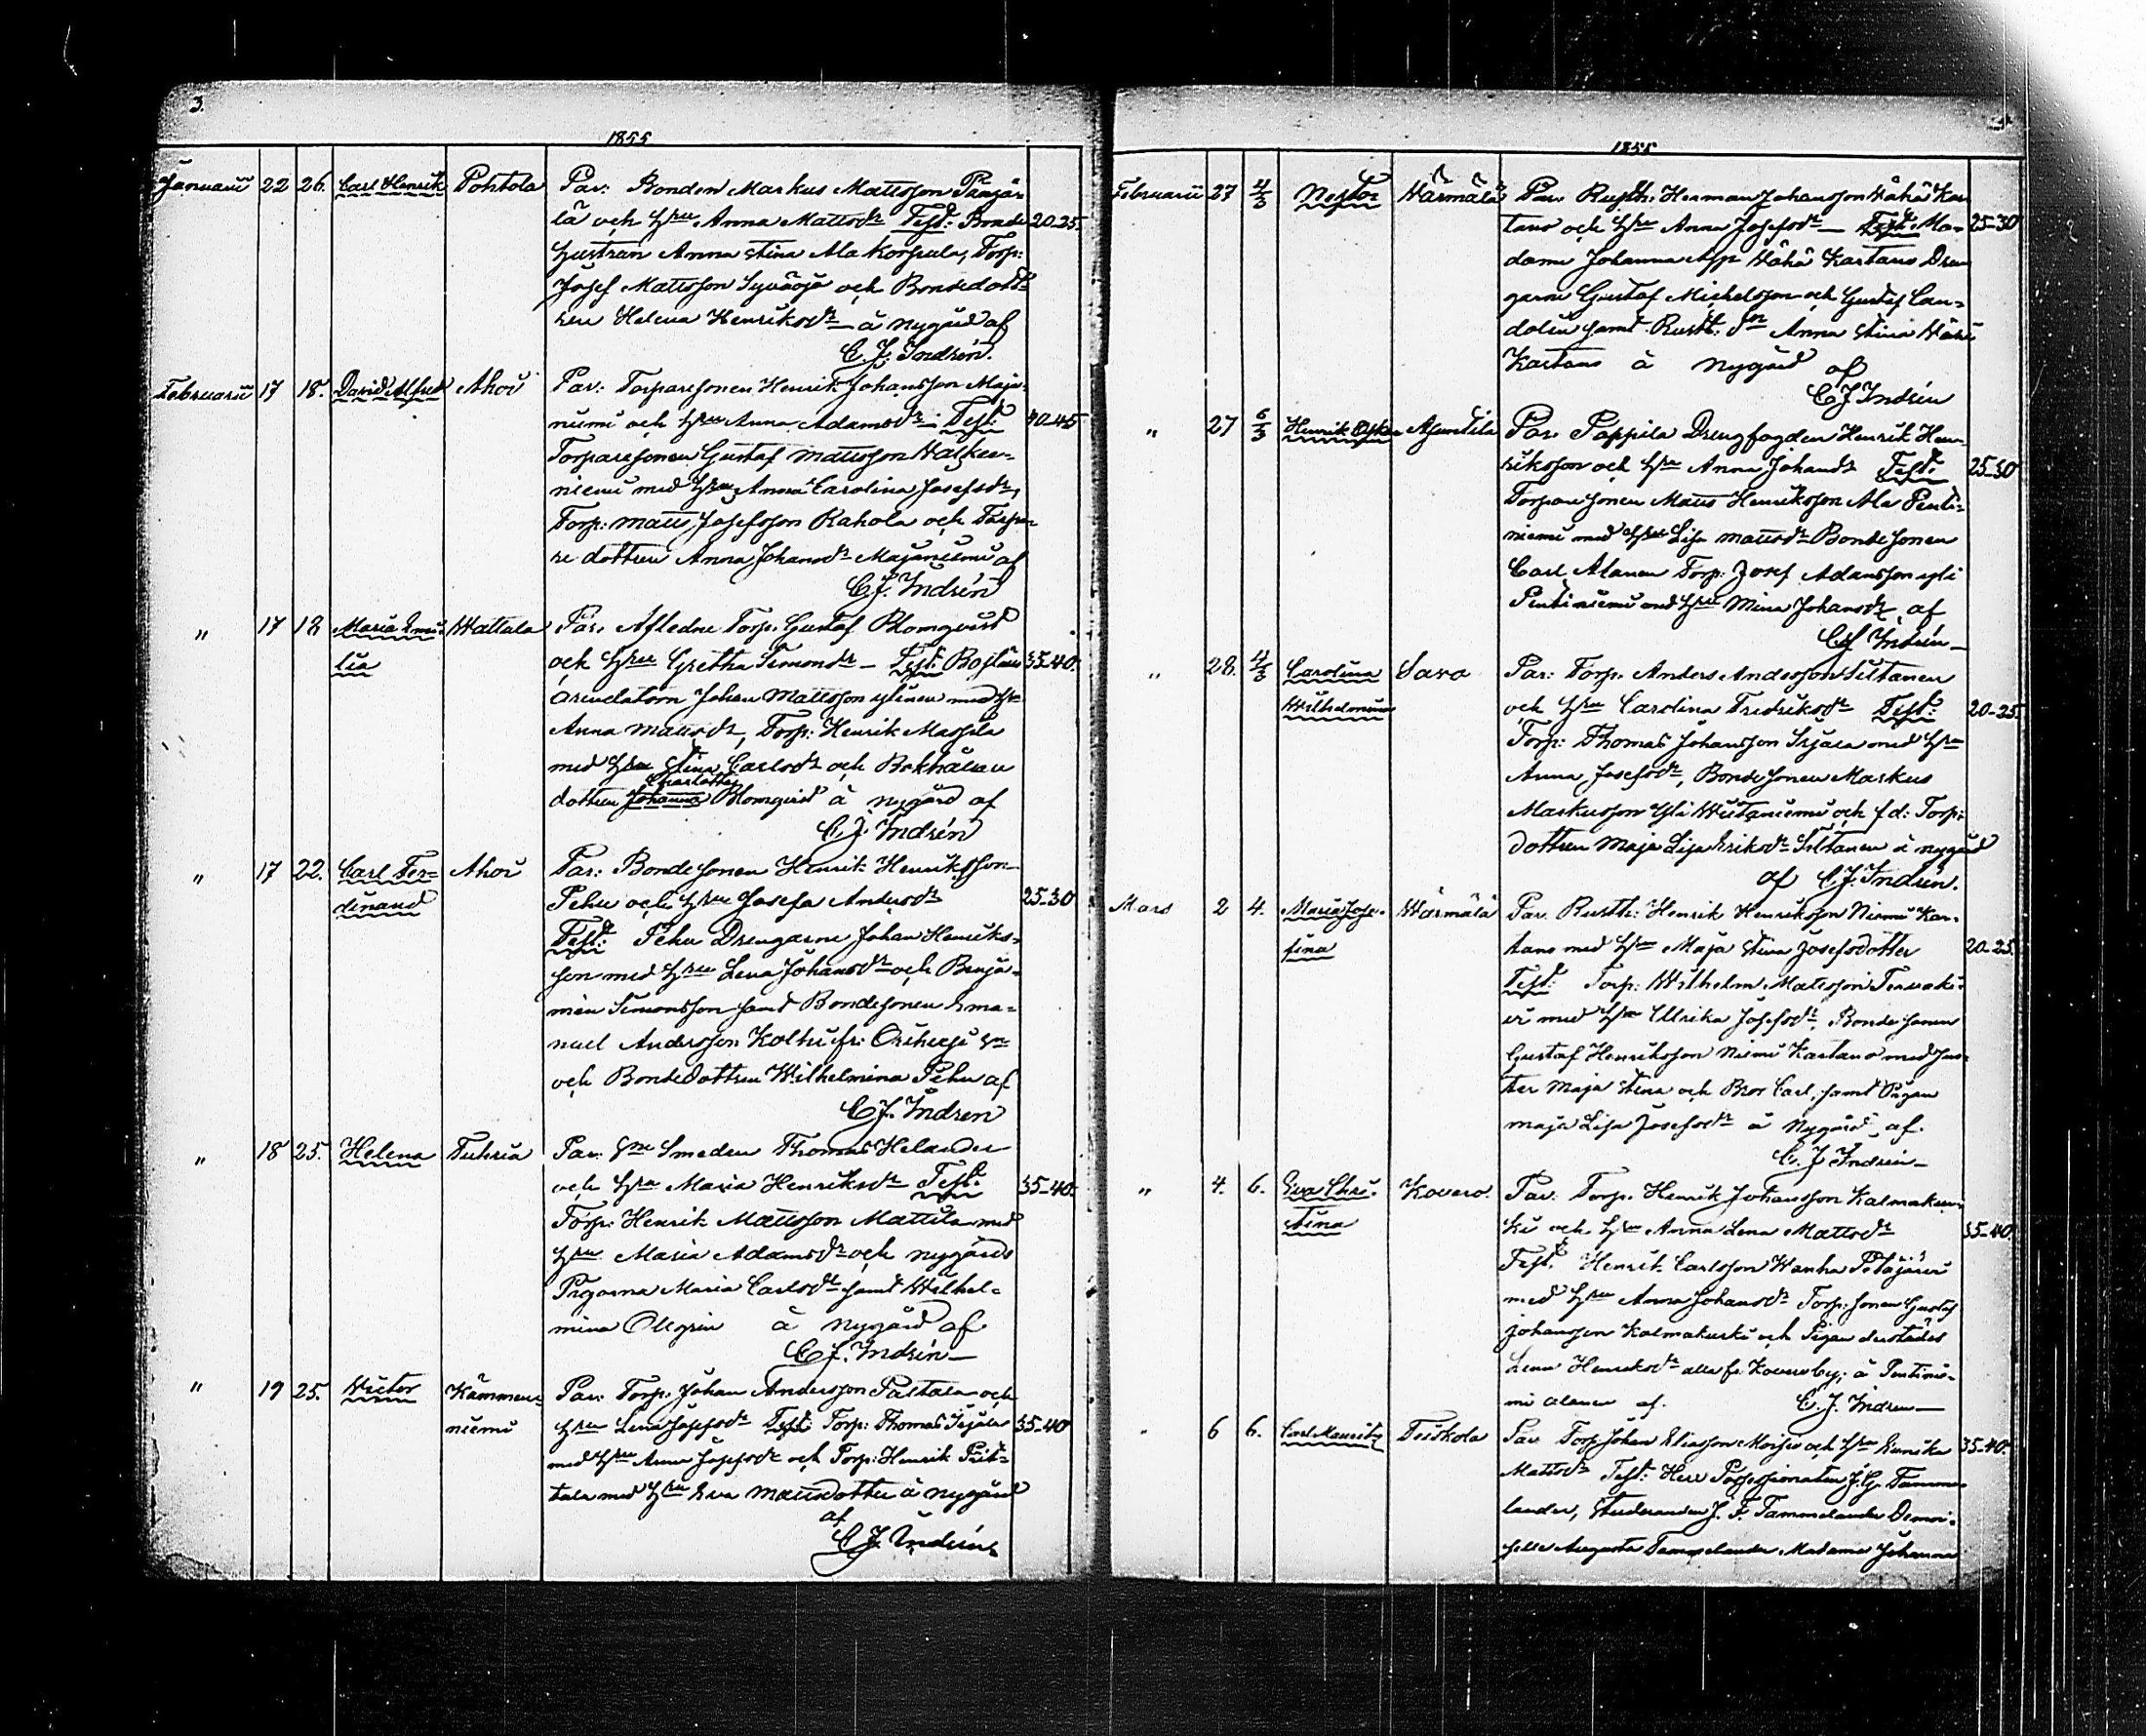 3.
1855
Januarii 22 26. Carl Henrik Pohtola Par: Bonden Markus Mattsson
lä och Hru Anna Mattsdr Test: Bonde 20-25.
Hustrun Anna Stina Ala Korpula, Torp:
Josef Mattsson Syväoja och Bondedott=
ren Helena Henriksdr å nygård af
C. J. Indrén.
Februarii 17 18. David Alfred Ahoi Par: Torparesonen Henrik Johansson Maja-
niemi och Hru Anna Adamsdr Test: 40-45
Torparesonen Gustaf Mattsson
niemi med Hru Anna Carolina Josefsdr,
Torp: Matts Josefsson Rahola och Torpa-
re dottren Anna Johansdr Majaniemi af
C. J. Indrén
" 17 18 Maria Emi- Wattala Par. Afledne Torp. Gustaf Blomqvist
lia och Hru Gretha Simonsdr Test: 35-40.
Arendatorn Johan Mattsson Ylinen med Hru
Anna Mattsdr, Torp: Henrik Massila
med Hru Stina Carlsdr och Bokhållare
Charlotta
dottren Johanna Blomqvist å nygård af
C. J. Indrén
" 17 22. Carl Fer= Ahoi Par: Bondesonen Henrik Henriksson
dinand Pehu och Hru Josefa Andersdr 25-30
Test: Pehu Drengarne Johan Henriks=
son med Hru Lena Johansdr och Benja=
min Simonsson samt Bondesonen Ema=
nuel Andersson Kolhi fr: Orihvesi
och Bondedottren Wilhelmina Pehu af
C. J. Indren
" 18 25. Helena Tuhria Par: Smeden Thomas Helander
och Hru Maria Henriksdr Test: 35-40.
Torp: Henrik Mattsson Mattila med
Hru Maria Adamsdr och nygårds
Pigorna Maria Carlsdr samt Wilhel=
mina Ollgrin å nygård af
C. J. Indrén
" 19 25. Victor Kämmen= Par: Torp: Johan Andersson Paltala och
niemi Hru Lena Josefsdr Test: Torp: Thomas 35-40
med Hru Anna Josefsdr och Torp: Henrik
tala med Hru Eva Mattsdotter å nygård
af
C. J. Indrén
1855
Februarii 27 4/3 Nestor Wärmälä Par. Rusth. Herman Johansson Wähä Kar 25-30
tano och Hru Anna Josefsdr Test: Ma-
dame Johanna App Wähä Kartano Dren
garne Gustaf Michelsson och Gustaf Can=
dolin samt Rusth: Anna Stina Wähä
Kartano å nygård af
C J Indrén
" 27 6/3 Henrik Oskar Asuntila Par. Pappila Drengfogden Henrik Hen-
riksson och Hru Anna Johansdr Test. 25-30
Torparesonen Matts Henriksson Ala Penti-
niemi med Hru Lisa Mattsdr Bondesonen
Carl Alanen Torp: Josef Adamsson yli
Pentiniemi med Hru Mina Johansdr af
C. J. Indrén
" 28. 4/3 Carolina Savo Par: Torp: Anders Andersson Siltanen
Wilhelmina och Hru Carolina Fredriksdr Test: 20-25.
Torp: Thomas Johansson med Hru
Anna Josefsdr, Bondesonen Markus
Markusson Yli och f.d. Torp:
dottren Maja Lisa Eriksdr Siltanen å nygård
af C. J. Indrén.
Mars 2 4. Maria Jose- Wärmälä Par. Rusth: Henrik Henriksson Niemi Kar-
fina tano med Hru Maja Stina Josefsdotter 20-25.
Test: Torp: Wilhelm Mattsson
med Hru Ulrika Josefsdr, Bondesonen
Gustaf Henriksson Niemi Kartano med sys-
ter Maja Stina och Bror Carl, samt Pigan
Maja Lisa Josefsdr å Nygård, af.
C. J Indrén
" 4. 6. Eva Chri- Kovero. Par: Torp. Henrik Johansson Kalmakur-
stina ki och Hru Anna Lena Mattsdr 35-40.
Test. Henrik Carlsson Wanha Petäjärvi
med Hru Anna Johansdr Torp: sonen Gustaf
Johansson Kalmakurki och Pigan derstädes
Lena Henriksdr alla fr. Kovero by; å Pentinie-
mi Alanen af. C. J. Indren
" 6 6. Carl Mauritz Teiskola Par. Torp: Johan Eliasson Moisio och Hru 35-40.
Mattsdr Test: Herr Possessionaten J. G. Tamme
lander, Studeranden J. F. Tammelander Demoi-
selle Augusta Tammelander Madame Johanna